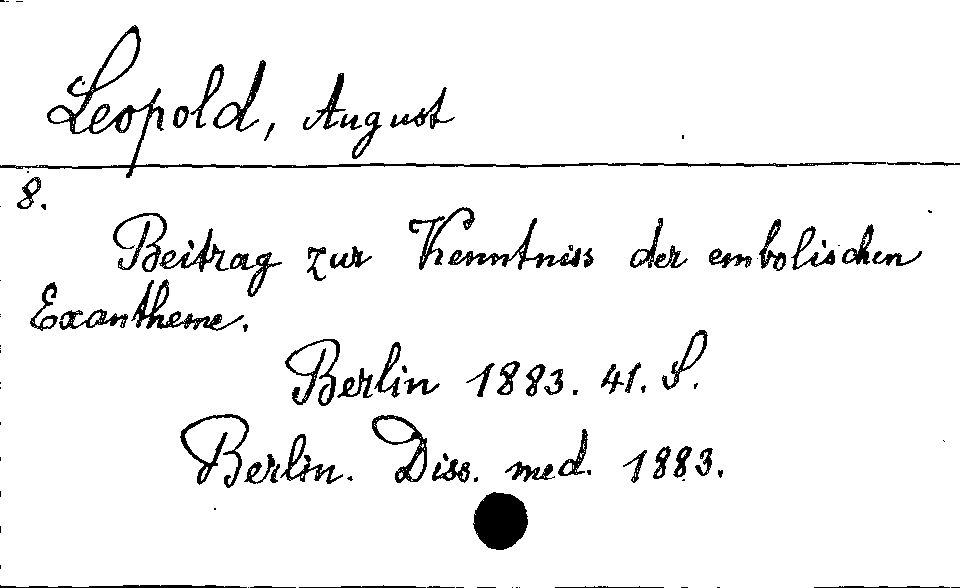 Leopold, August
8.
Beitrag zur Kenntniss der embolischen
Exantheme.
Berlin 1883. 41. S.
Berlin. Diss. med. 1883.